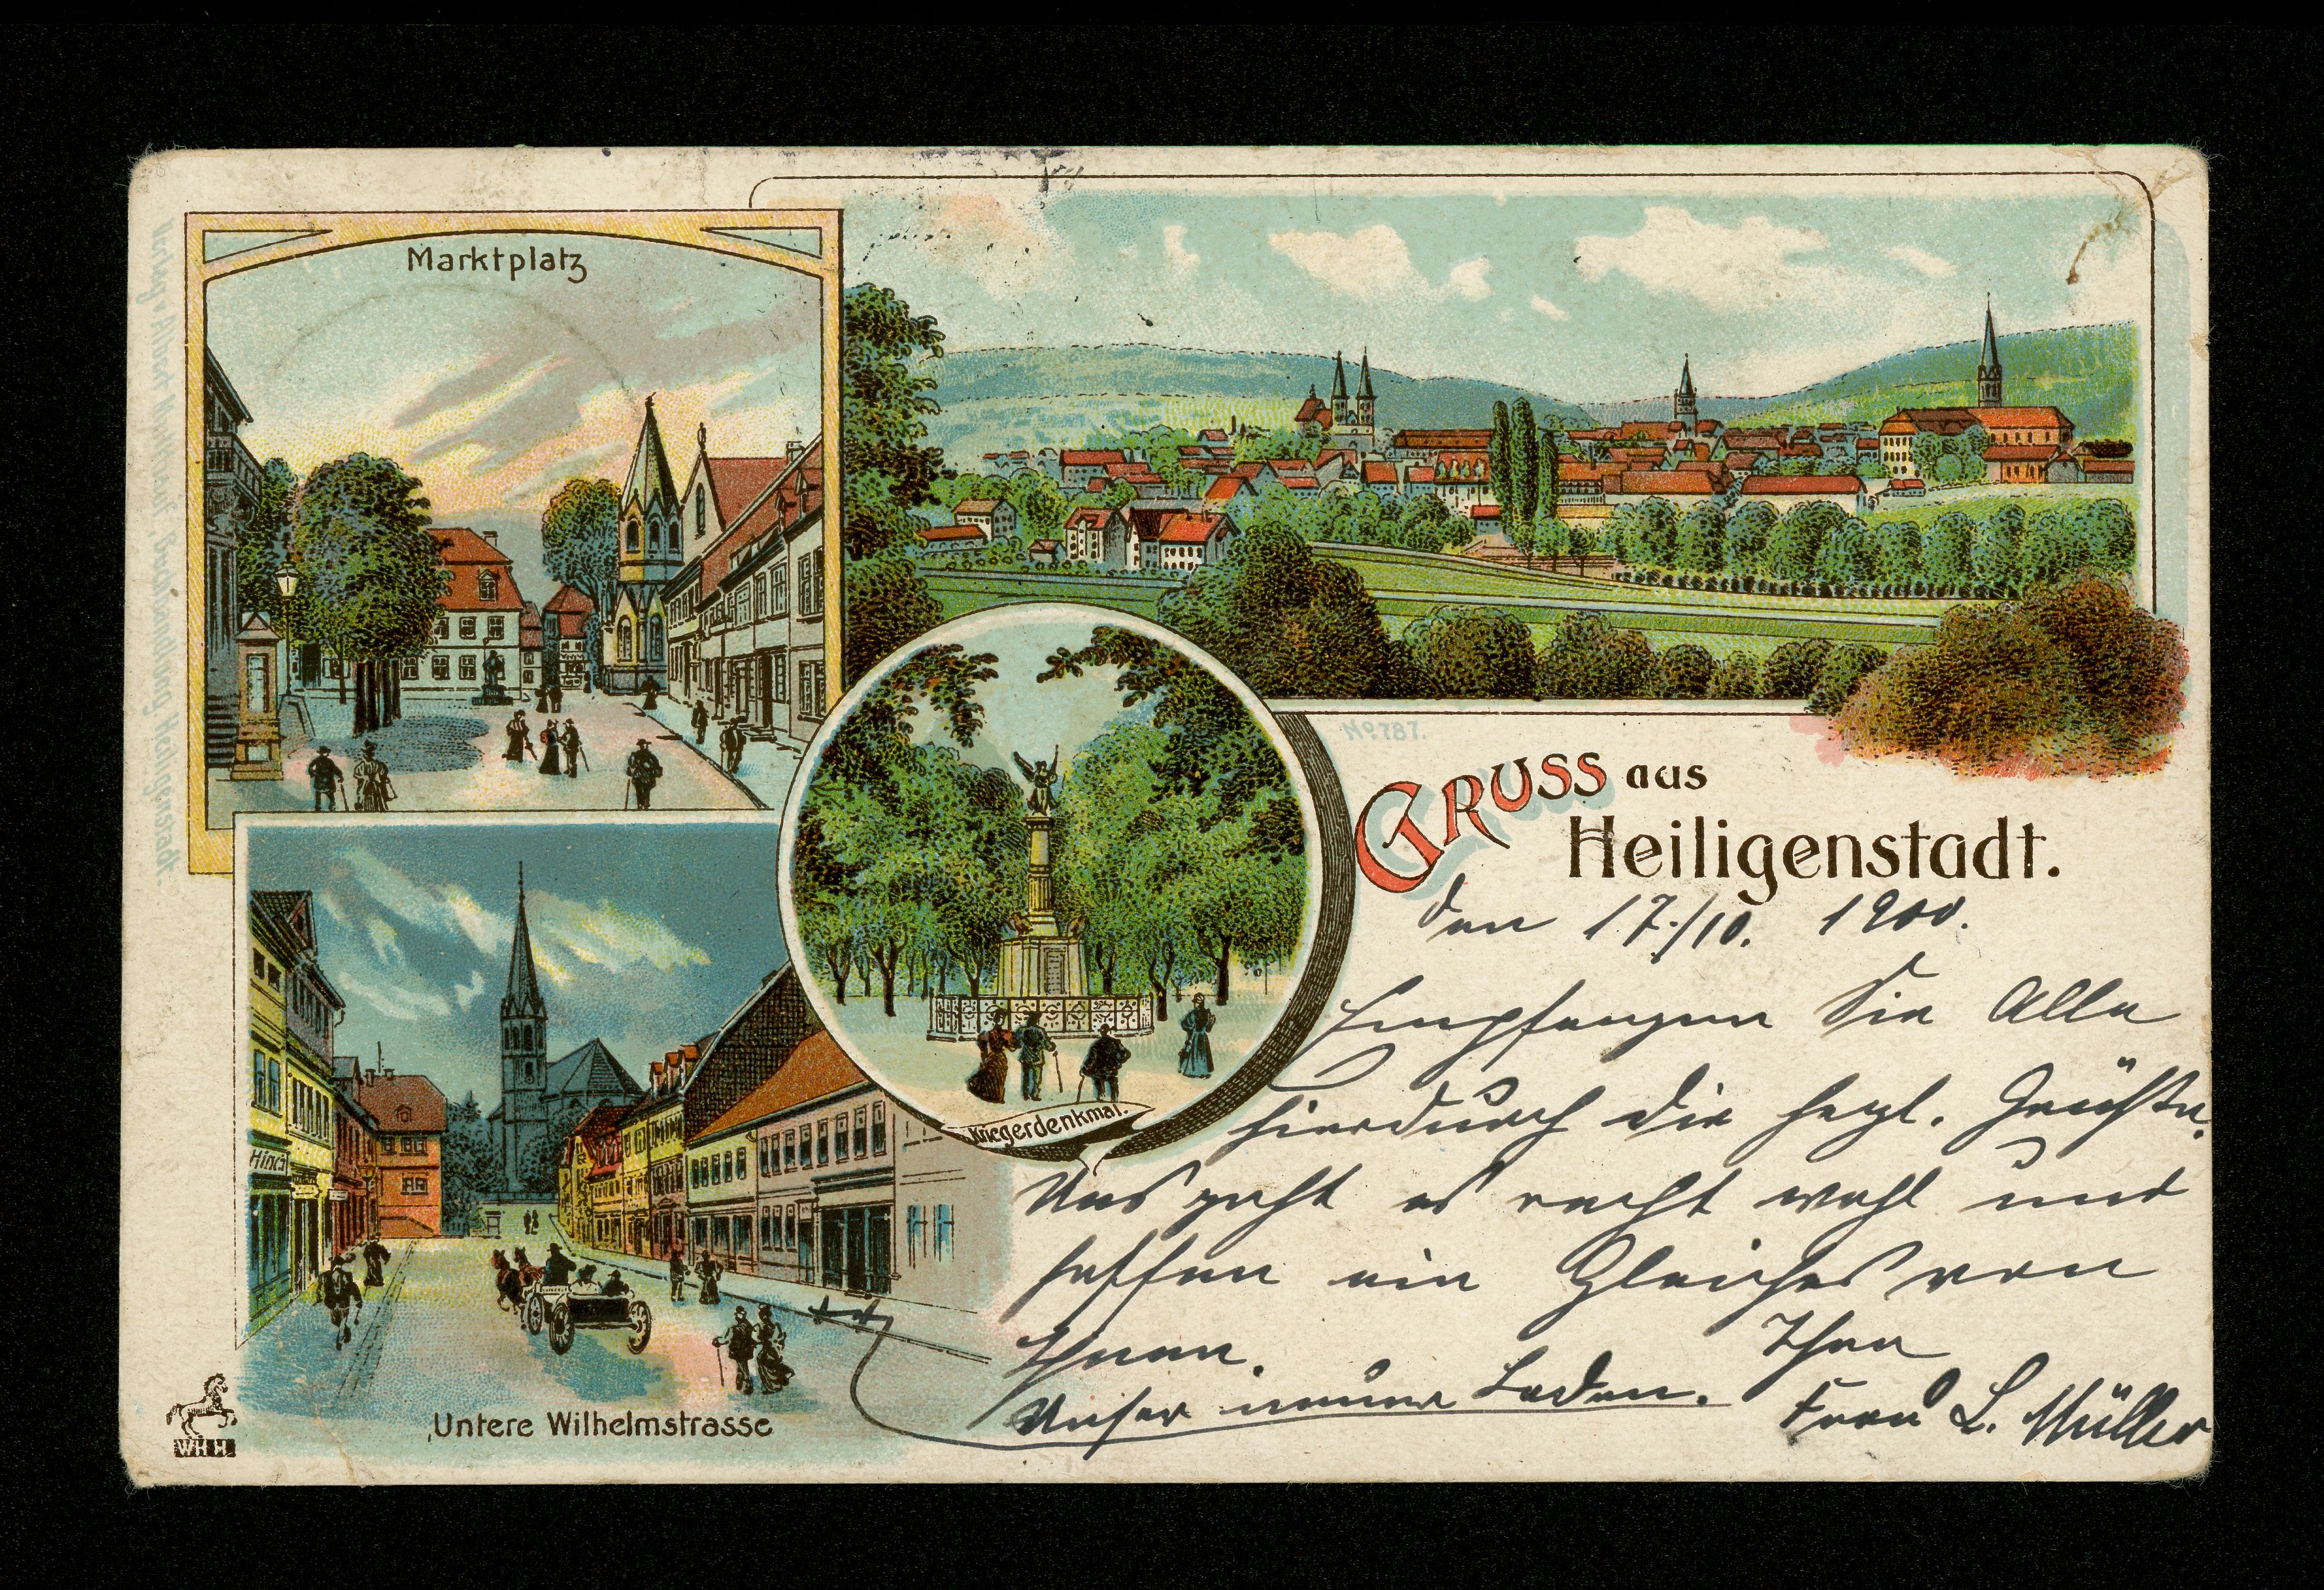 Marktplatz
No 787.
GRUSS aus
Heiligenstadt.
den 17./10. 1900.
Empfangen Sie Alle
hierdurch die herzl. Grüße.
Uns geht es recht wohl und
hoffen ein Gleiches von
Ihnen.
Ihre
Unser neuer Laden.
Frau L. Müller
Kriegerdenkmal.
Untere Wilhelmstrasse
WHH
Verlag v. Albert Buchhandlung, Heiligenstadt.